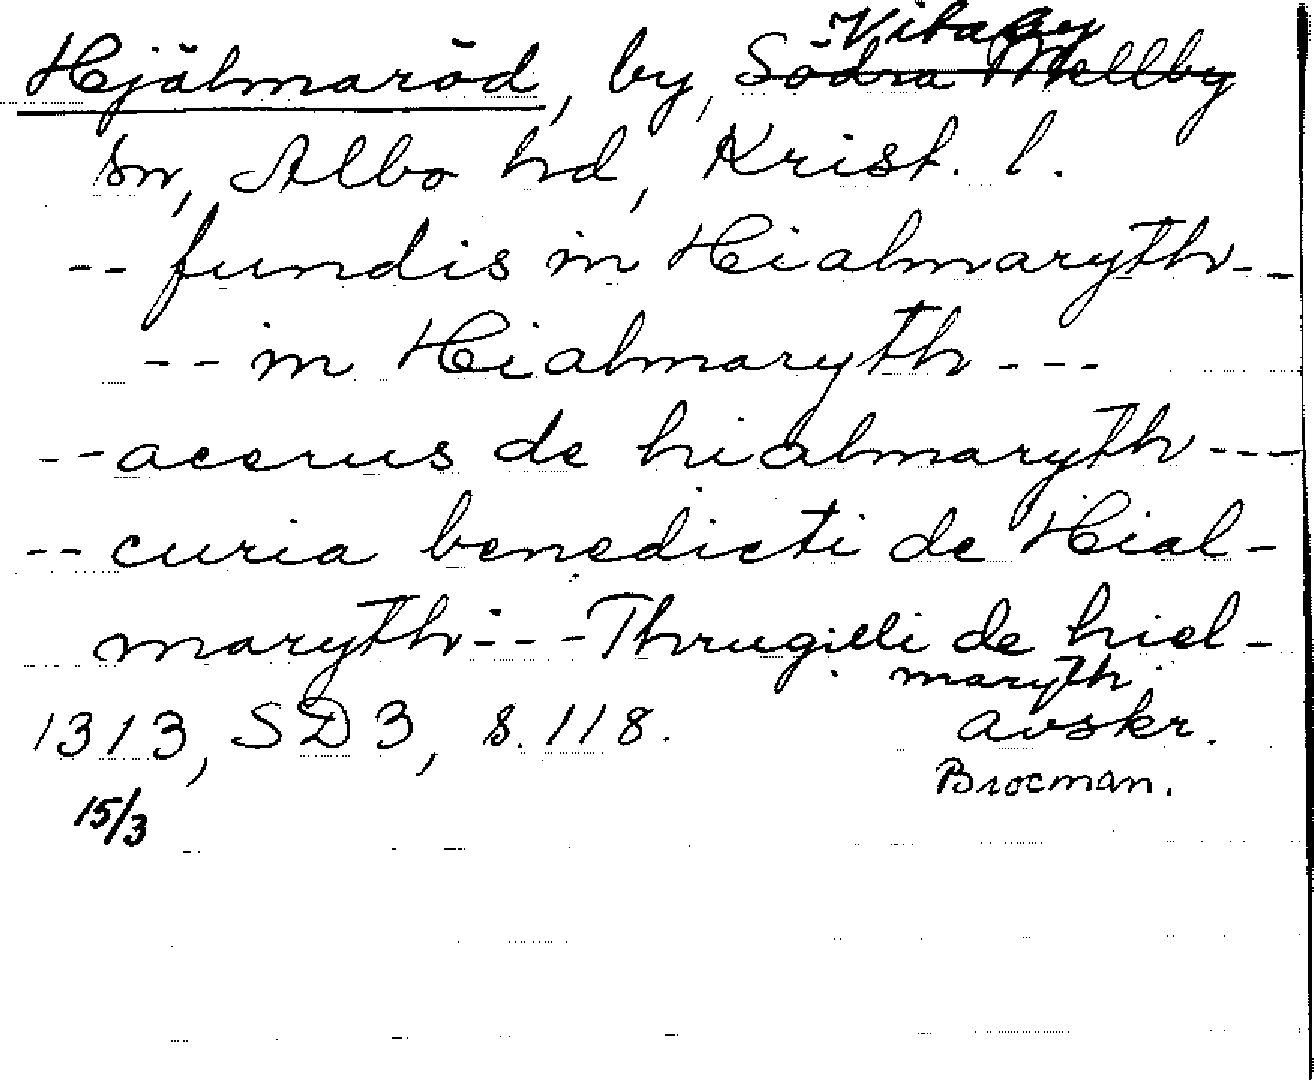 Vitaby
Hjälmaröd, by, Södra Mellby
sn, Albo hd, Krist. l.
-- fundis in Hialmaryth --
-- in Hialmaryth ---
-- acerus de hialmaryth ---
-- curia benedicti de Hial-
maryth --- Thrugilli de hiel-
maryth
1313, SD 3, s. 118. avskr.
15/3 Brocman.